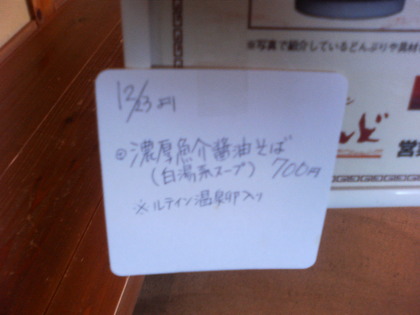 ※写真で紹介しているどんぶりや具材
んど
営
12/23 より
◎濃厚魚介醤油そば
(白湯系スープ) 700円
※ルテイン温泉卵入り